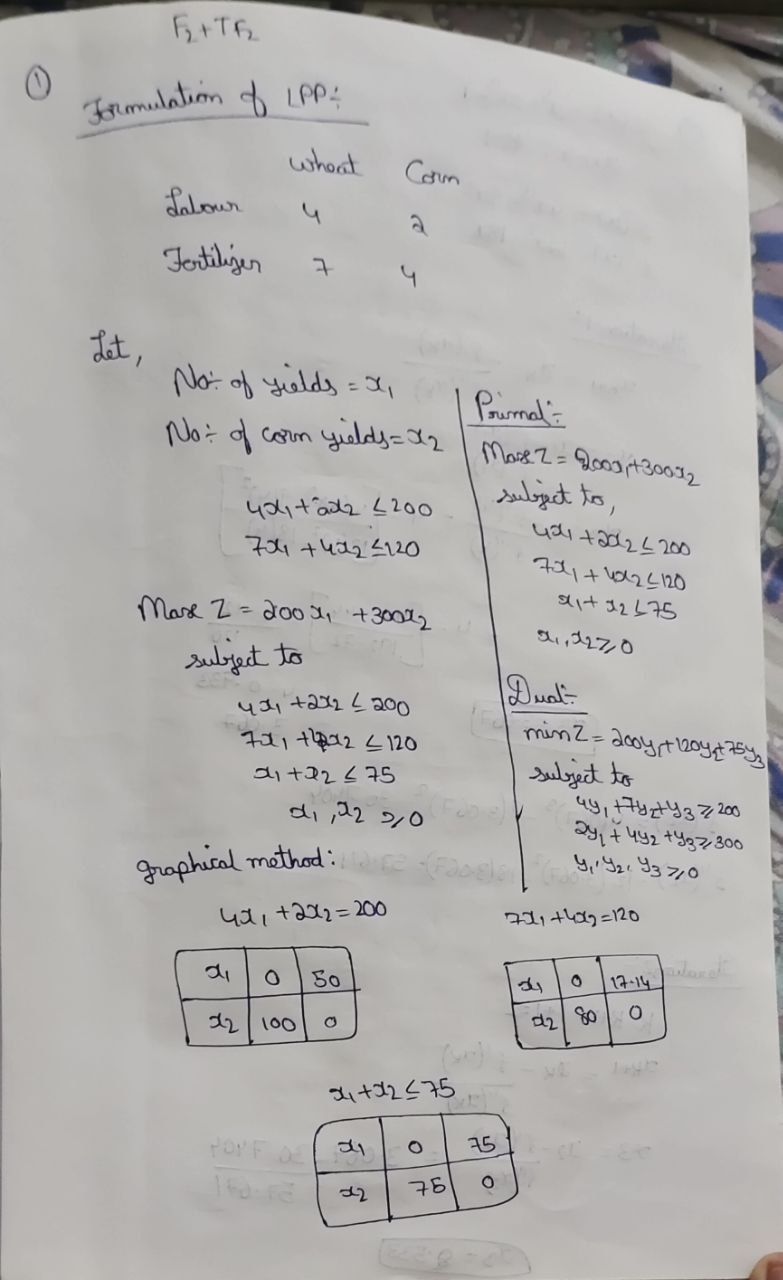 F₂+TF₂
①
Formulation of LPP:-
Wheat Corn
Labour 4 2
Fertilizer 7 4
Let,
No:- of yields = x₁
No:- of corn yields = x₂
4x₁+2x₂ ≤ 200
7x₁ + 4x₂ ≤ 120
Max Z = 200x₁ + 300x₂
subject to
4x₁ + 2x₂ ≤ 200
7x₁ + 4x₂ ≤ 120
x₁ + x₂ ≤ 75
x₁, x₂ ≥ 0
Primal:-
Max Z = 200x₁+300x₂
subject to,
4x₁ + 2x₂ ≤ 200
7x₁ + 4x₂ ≤ 120
x₁ + x₂ ≤ 75
x₁, x₂ ≥ 0
Dual:-
min Z = 200y₁+120y₂+75y₃
subject to
4y₁+7y₂+y₃ ≥ 200
2y₁+4y₂+y₃ ≥ 300
y₁, y₂, y₃ ≥ 0
graphical method:
4x₁ + 2x₂ = 200
x₁ 0 50
x₂ 100 0
7x₁ + 4x₂ = 120
x₁ 0 17.14
x₂ 80 0
x₁ + x₂ ≤ 75
x₁ 0 75
x₂ 75 0